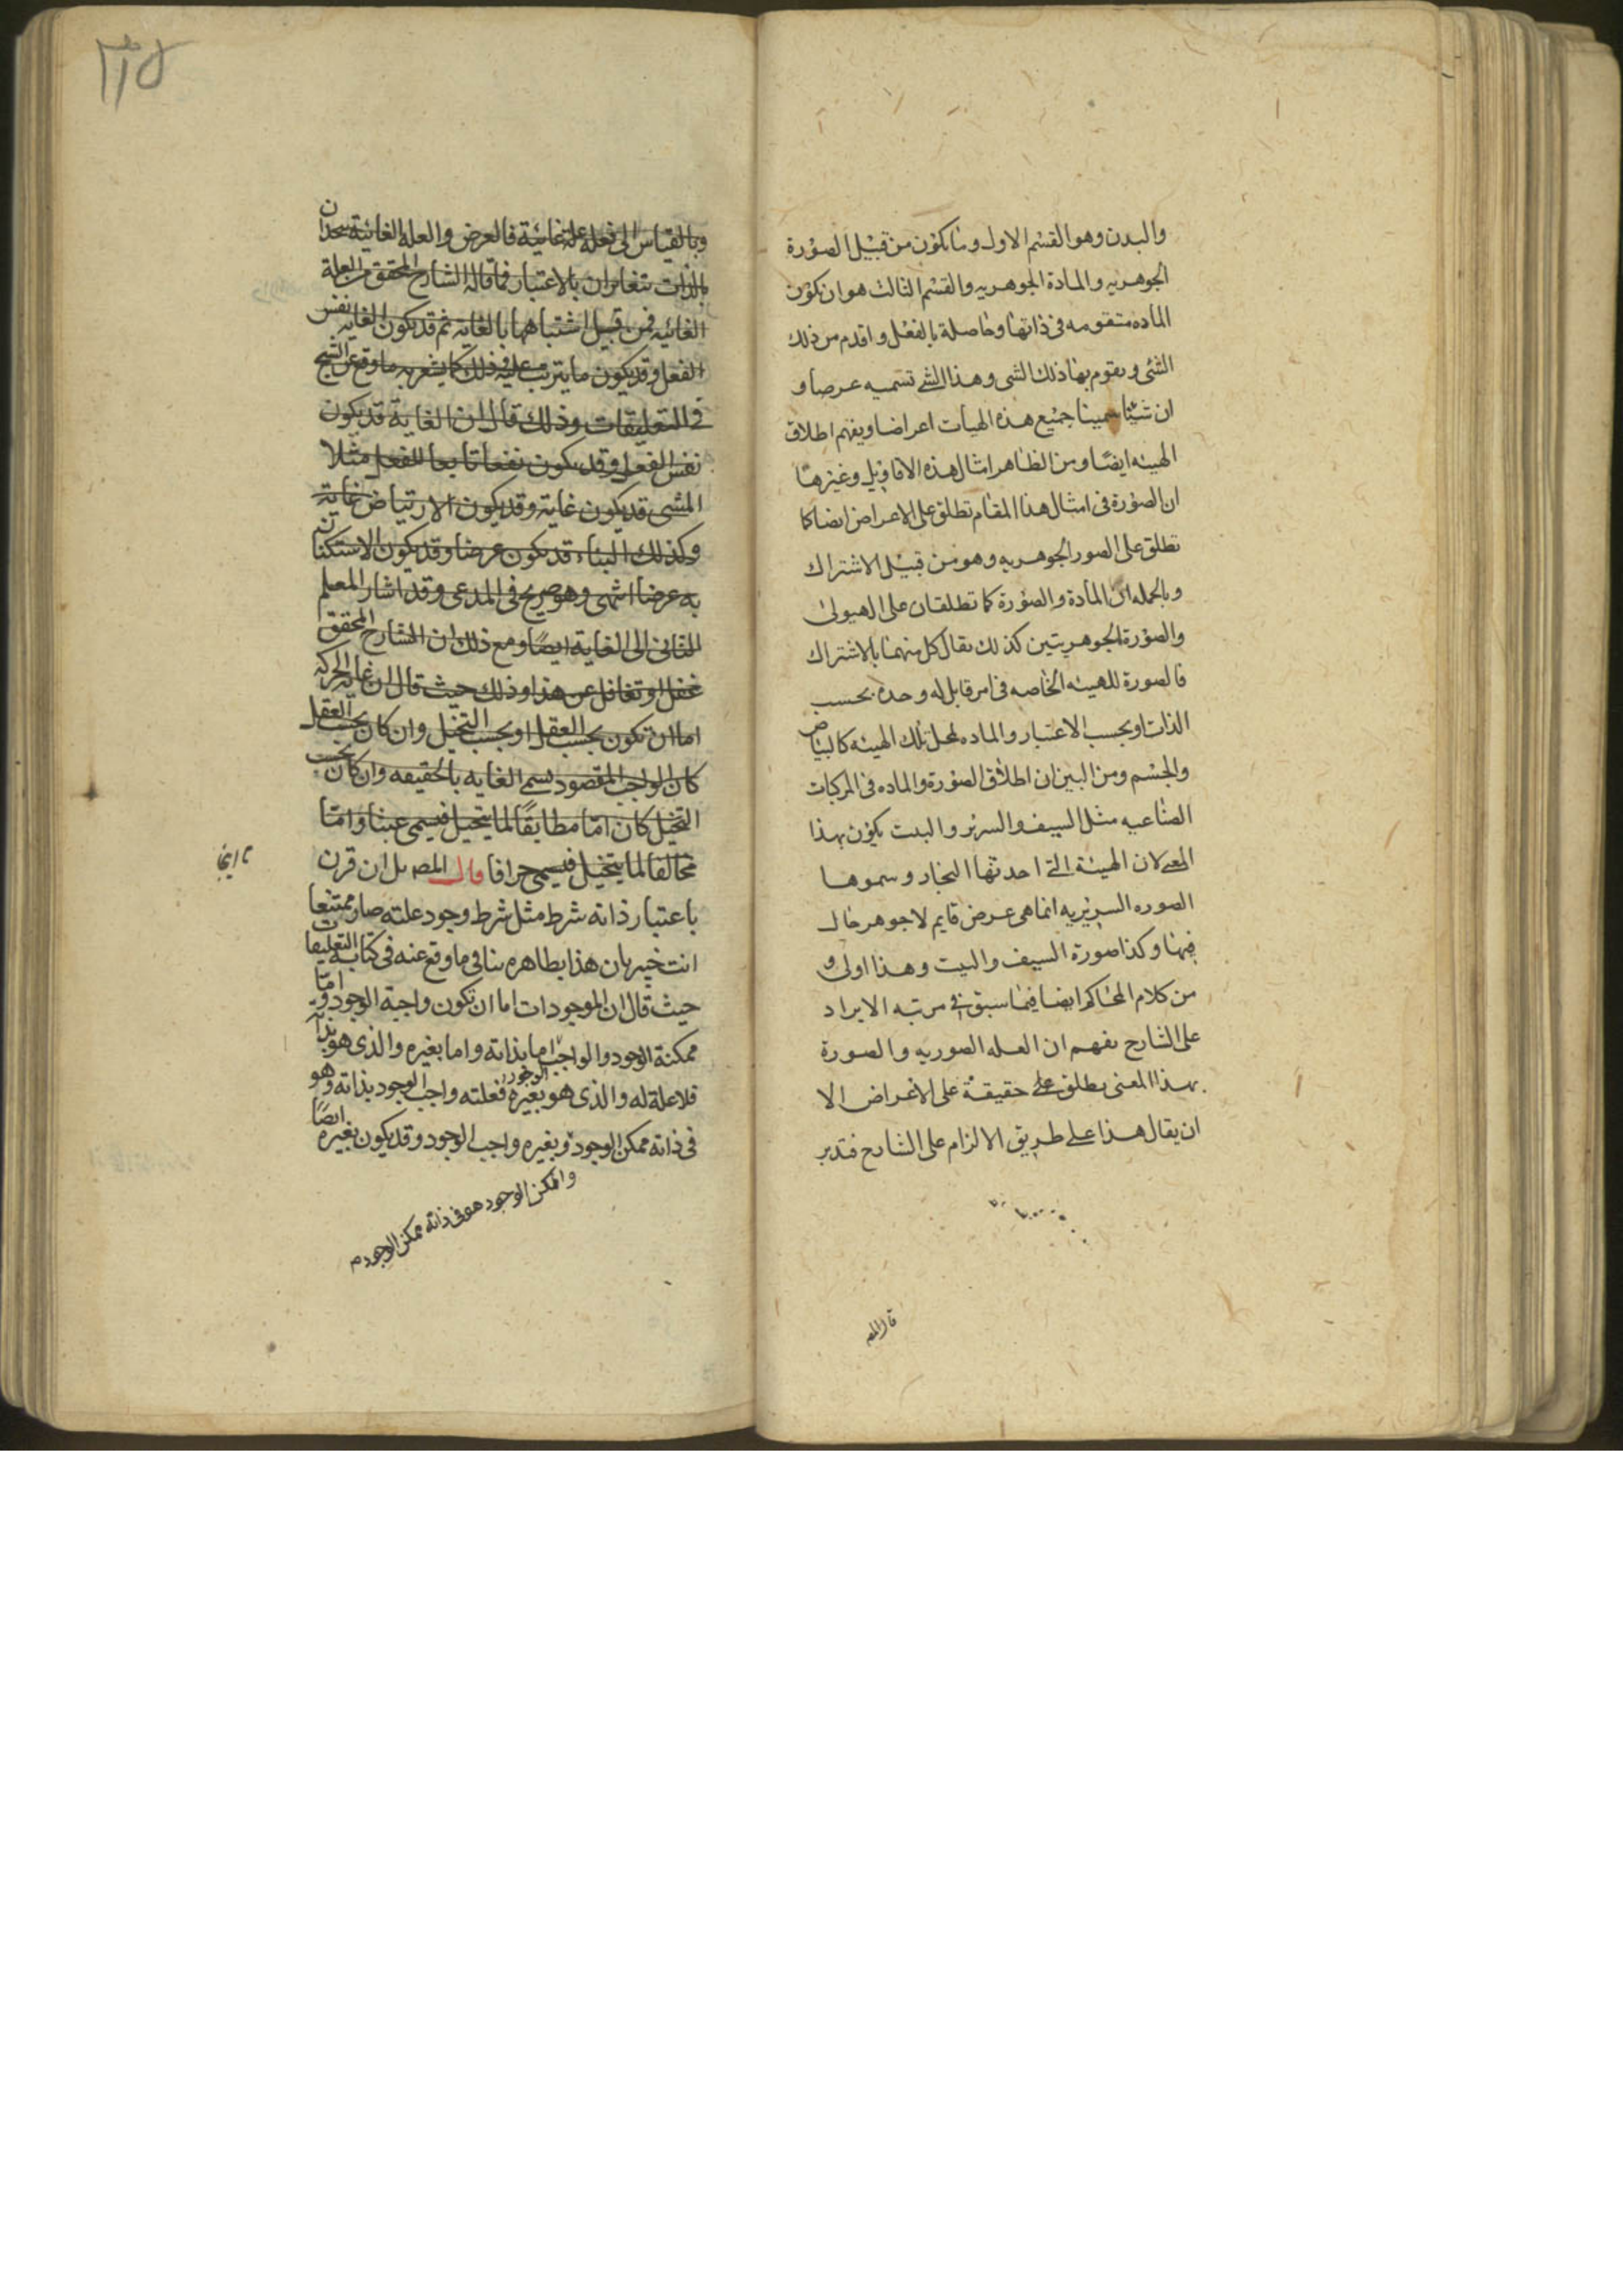 والبدن وهو القسم الاول وما يكون من قبيل الصورة
الجوهريه والمادة الجوهريه والقسم الثالث هو ان يكون
الماده متقومه فى ذاتها وحاصلة بالفعل واقدم من ذلك
الشئى ويقوم بها ذلك الشى وهذا الشے تسميه عرضا و
ان شئنا سمينا جميع هذه الهيأت اعراضا ويفهم اطلاق
الهيئه ايضًا ومن الظاهر امثال هذه الاقاويل وغيرها
ان الصورة فى امثال هذا المقام تطلق على الاعراض ايضا كما
تطلق على الصور الجوهريه وهو من قبيل الاشتراك
وبالجمله ان المادة والصورة كما تطلقان على الهيولى
والصورة الجوهريتين كذلك يقال كل منهما بالاشتراك
فالصورة للهيئه الخاصه فى امر قابل له وحده بحسب
الذات او بحسب الاعتبار والماده لمحل تلك الهيئه كالبياض
والجسم ومن البين ان اطلاق الصورة والماده فى المركبات
الصناعيه مثل السيف والسرير والبيت يكون بهذا
المعے لان الهيئة التے احدثها النجار وسموها
الصوره السريريه انما هى عرض قايم لا جوهر حال
فيها وكذا صورة السيف والبيت وهذا اولى و
من كلام المحاكم ايضا فيما سبق فے مرتبه الايراد
على الشارح يفهم ان العله الصوريه والصورة
بهذا المعنى يطلق على حقيقة على الاعراض الا
ان يقال هذا علے طريق الالزام على الشارح فتدبر
قال المص
وبالقياس الى فعله علة غائية فالغرض والعلة الغائية متحدان
بالذات متغايران بالاعتبار فما قاله الشارح المحقق من العلة
الغائيه فمن قبيل اشتباهها بالغايه ثم قد يكون الغايه نفس
الفعل وقد يكون ما يترتب عليه وذلك كما يشعر به ما وقع عن الشيخ
فے التعليقات وذلك قال ان الغاية قد يكون
نفس الفعل وقد يكون نفعا تابعا للفعل مثلا
المشى قد يكون غاية وقد يكون الارتياض غاية
وكذلك البناء قد يكون غرضا وقد يكون الاستكنان
به غرضا انتهى وهو صريح فى المدعى وقد اشار المعلم
الثانى الى الغاية ايضًا ومع ذلك ان الشارح المحقق
غفل او تغافل عن هذا وذلك حيث قال ان غاية الحركه
اما ان تكون بحسب العقل او بحسب التخيل وان كان بحسب العقل
كان الواجب المقصود يسمى الغايه بالحقيقه وان كان بحسب
التخيل كان امّا مطابقًا لما يتخيل فيسمى عبثا وامّا
مخالفا لما يتخيل فيسمى جزافا قال المص بل ان قرن
باعتبار ذاته شرط مثل شرط وجود علته صار ممتنعا
انت خبير بان هذا بظاهره ينافى ما وقع عنه فى كتابه التعليقات
حيث قال ان الموجودات اما ان تكون واجبة الوجود وامّا
ممكنة الوجود والواجب اما بذاته واما بغيره والذى هو بذاته
فلا علة له والذى هو بغيره فعلته واجب الوجود بذاته وهو
الوجود
فى ذاته ممكن الوجود وبغيره واجب الوجود وقد يكون بغيره ايضًا
والممكن الوجود هو فى ذاته ممكن الوجود م